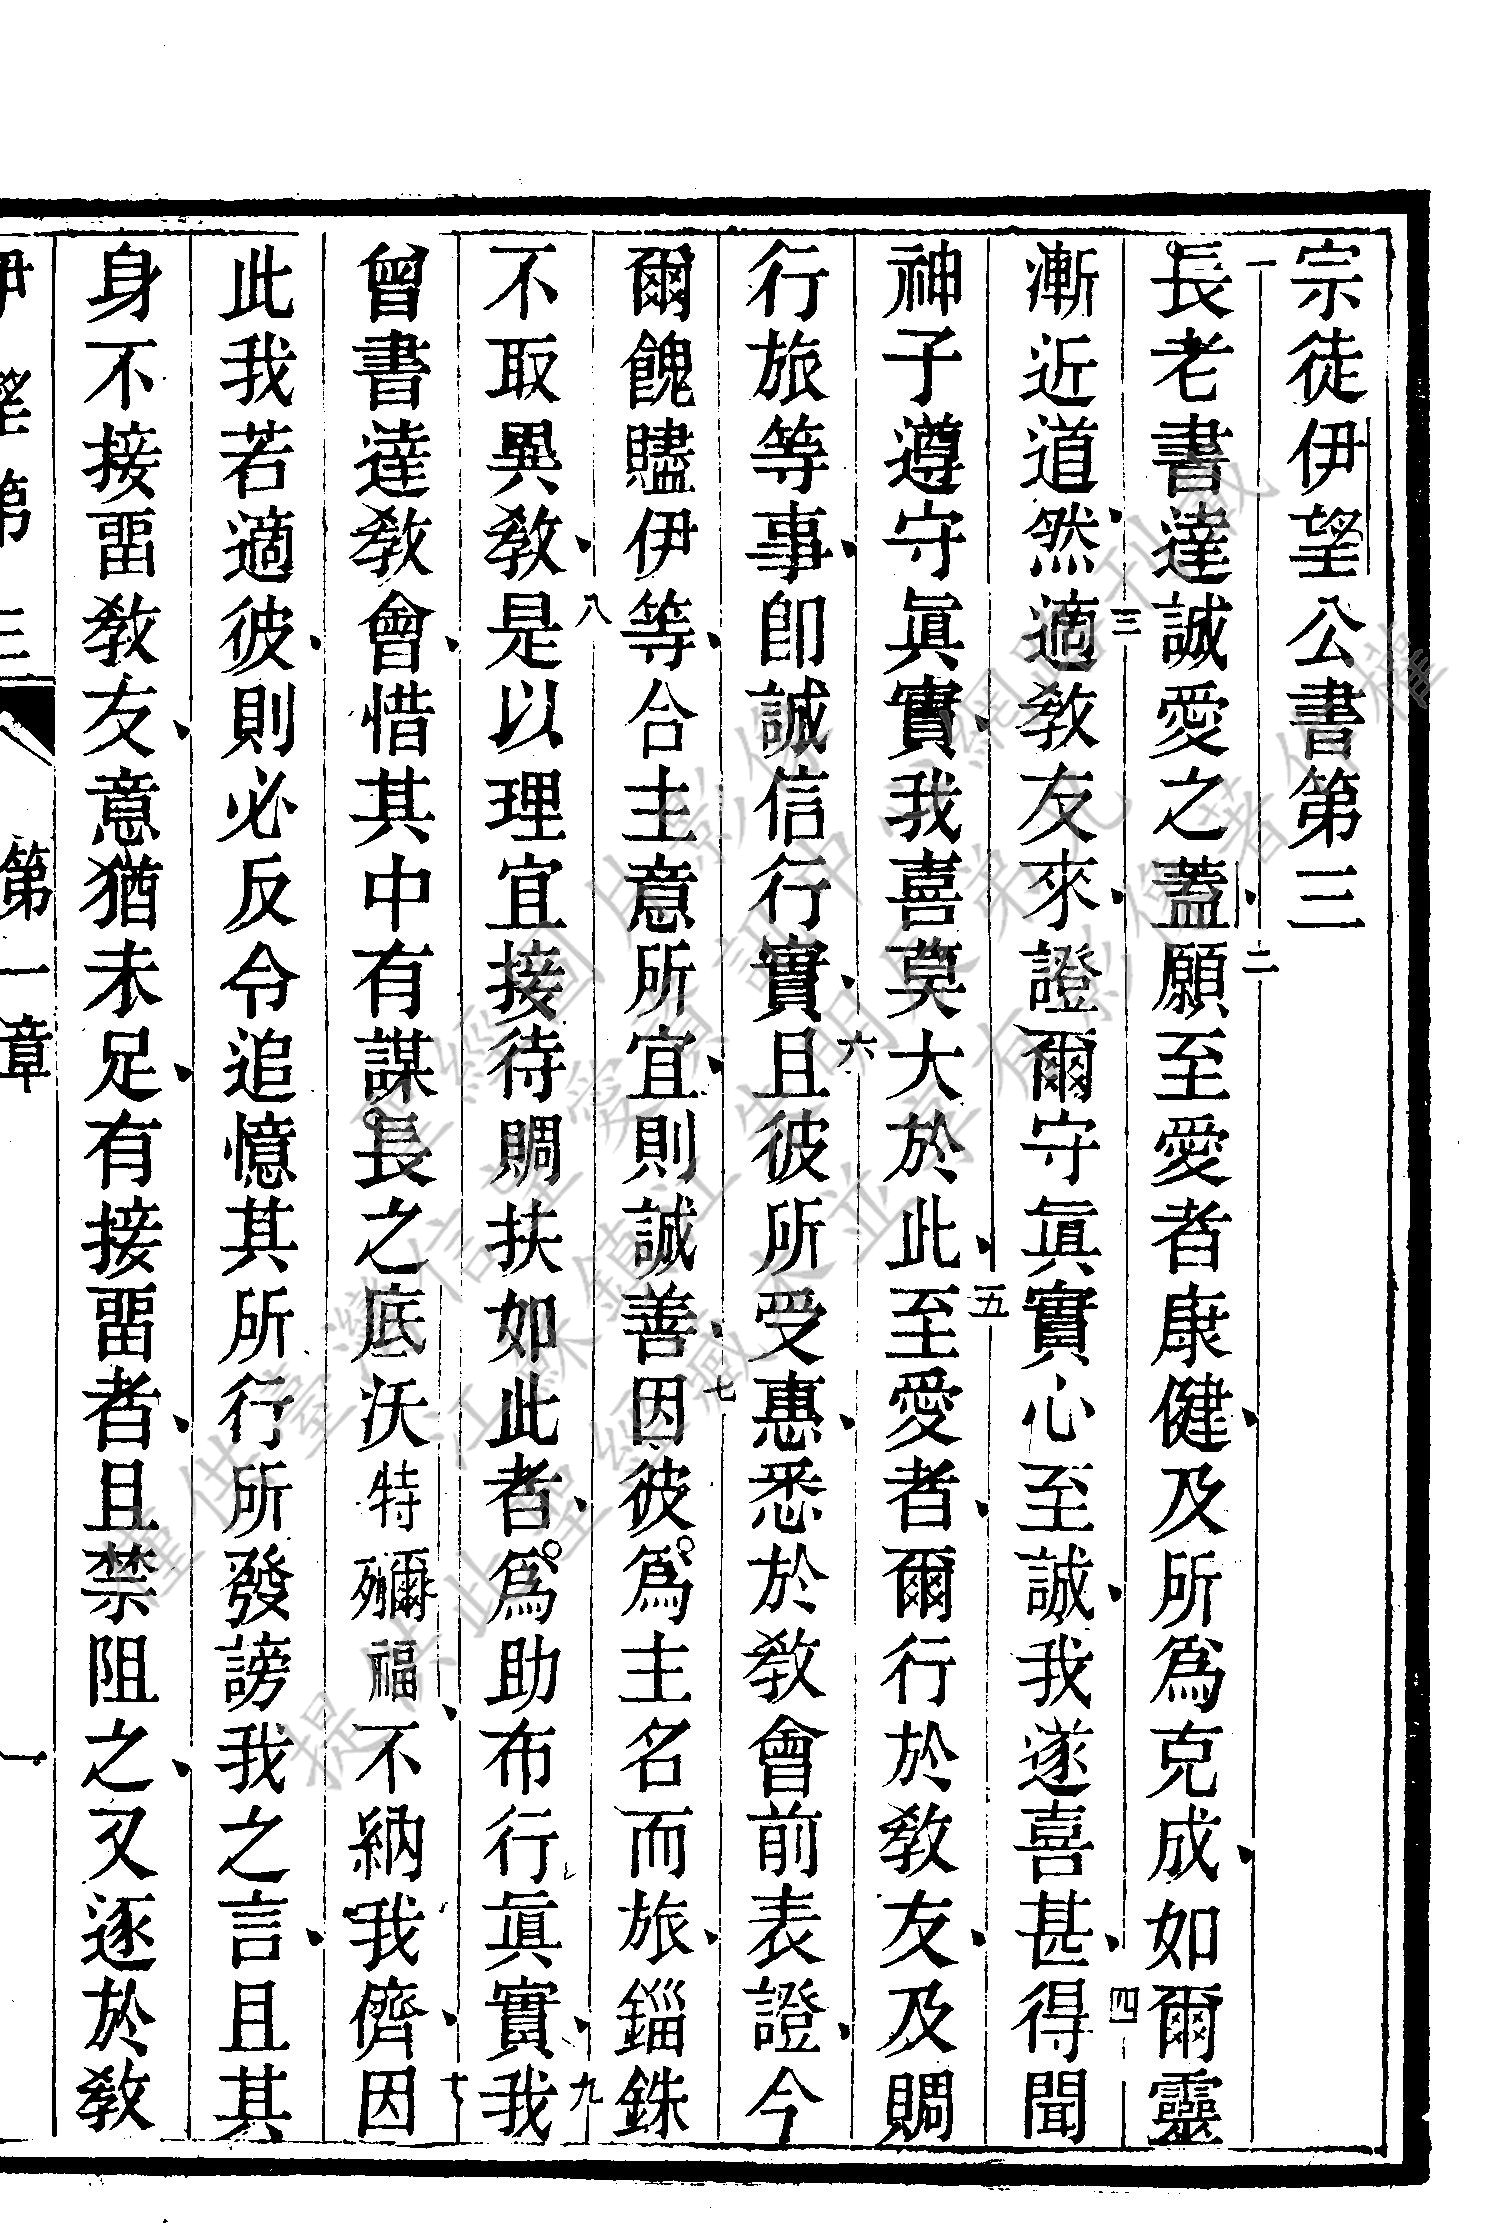 宗徒伊望公書第三
一長老書達誠愛之蓋、二願至愛者康健、及所爲克成、如爾靈
漸近道、三然適教友來、證爾守眞實心至誠、我遂喜甚、四得聞
神子遵守眞實、我喜莫大於此、五至愛者、爾行於教友、及賙
行旅等事、卽誠信行實、六且彼所受惠、悉於教會前表證、今
爾餽贐伊等、合主意所宜、則誠善、七因彼爲主名而旅、錙銖
不取異教、八是以理宜接待賙扶如此者、爲助布行眞實、九我
曾書達教會、惜其中有謀長之底沃特彌福、不納我儕、十因
此我若適彼、則必反令追憶其所行所發謗我之言、且其
身不接畱教友、意猶未足、有接畱者、且禁阻之、又逐於教
伊望第三 第一章 一